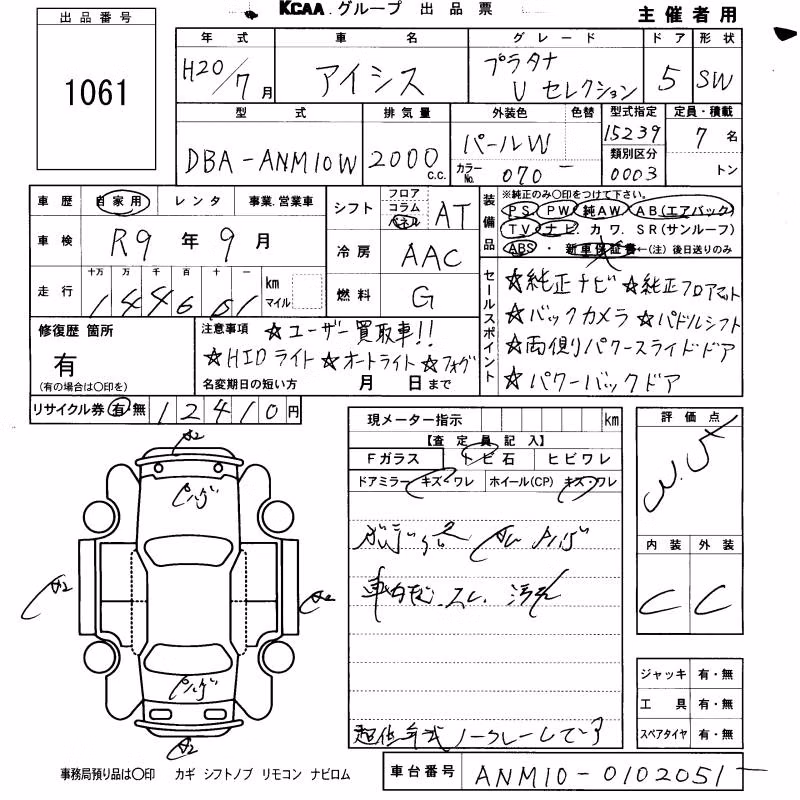 KCAA.グループ 出品票 主催者用
出品番号
1061
年式 車名 グレード ドア 形状
H20/7月 アイシス プラタナ Vセレクション 5 SW
型式 排気量 外装色 色替 型式指定 定員・積載
DBA-ANM10W 2000c.c. パールW 15239 7名
カラーNo. 070 類別区分 0003 トン
車歴 自家用 レンタ 事業.営業車
シフト フロア コラム パネル AT
装備品 ※純正のみ〇印をつけて下さい。
PS PW 純AW AB(エアバック)
TV ナビ カワ.SR(サンルーフ)
ABS・新車保証書←(注)後日送りのみ
車検 R9年9月
冷房 AAC
走行 十万 万 千 百 十 一
144661 km マイル
燃料 G
セールスポイント
☆純正ナビ ☆純正フロアマット
☆バックカメラ ☆パドルシフト
☆両側パワースライドドア
☆パワーバックドア
修復歴 箇所
有
(有の場合は〇印を)
注意事項 ☆ユーザー買取車!!
☆HIDライト ☆オートライト ☆フォグ
名変期日の短い方 月 日まで
リサイクル券 有 無 12410円
現メーター指示 km
【査定員記入】
Fガラス トビ石 ヒビワレ
ドアミラー キズ・ワレ ホイール(CP) キズ・ワレ
評価点
内装 外装
C C
A2
A2
A2
車内 スレ 汚れ
低年式 ノークレームです
ジャッキ 有・無
工具 有・無
スペアタイヤ 有・無
事務局預り品は〇印 カギ シフトノブ リモコン ナビロム
車台番号 ANM10-0102051